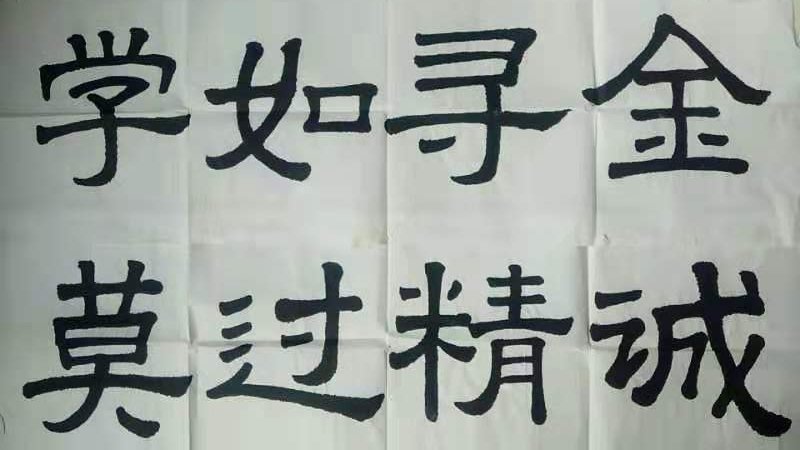 学如寻金
莫过精诚